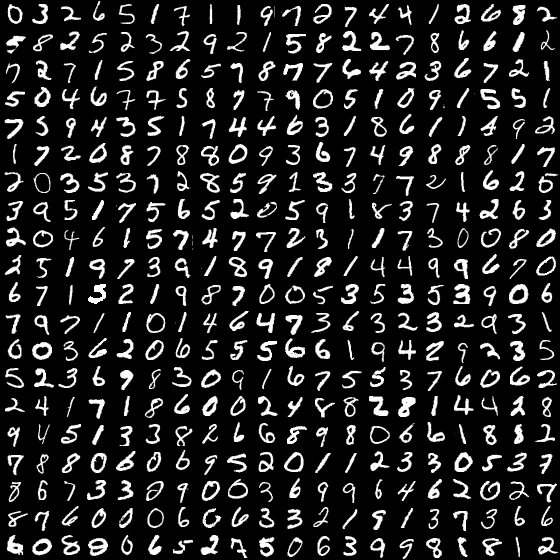 0 3 2 6 5 1 7 1 1 9 7 2 7 4 4 1 2 6 8 2
5 8 2 5 2 3 2 9 2 1 5 8 2 2 7 8 6 6 1 2
7 2 7 1 5 8 6 5 7 8 7 7 6 4 2 3 6 7 2 1
5 0 4 6 7 7 5 8 7 7 9 0 5 1 0 9 1 5 5 1
7 5 9 4 3 5 1 7 4 4 6 3 1 8 6 1 1 4 9 2
1 7 2 0 8 7 8 8 0 9 3 6 7 4 9 8 8 8 1 7
2 0 3 5 3 7 2 8 5 9 1 3 3 7 7 2 1 6 2 5
3 9 5 1 7 5 6 5 2 0 5 9 1 8 3 7 4 2 6 3
2 0 4 6 1 5 7 4 7 7 2 3 1 1 7 3 0 0 8 0
2 5 1 9 7 3 9 1 8 9 1 8 1 4 4 9 9 6 7 0
6 7 1 5 2 1 9 8 7 0 0 5 3 5 3 5 3 9 0 6
7 9 7 1 1 0 1 4 6 4 7 3 6 3 2 3 2 9 3 1
0 0 3 6 2 0 6 5 5 5 6 6 1 9 4 2 9 2 3 5
5 2 3 6 9 8 3 0 9 1 6 7 5 5 3 7 6 0 6 2
2 4 1 7 1 8 6 0 0 2 4 8 8 2 8 1 4 4 2 8
9 4 5 1 3 3 8 2 6 6 8 9 8 0 6 6 1 8 8 2
7 8 8 0 6 0 6 9 5 2 0 1 1 2 3 3 0 5 3 7
8 6 7 3 3 2 9 0 0 3 6 9 9 6 4 6 2 0 2 7
8 7 6 0 0 0 6 0 6 3 3 2 1 9 1 3 7 3 6 6
6 0 8 0 0 6 5 2 7 5 0 6 3 9 9 8 1 8 1 2